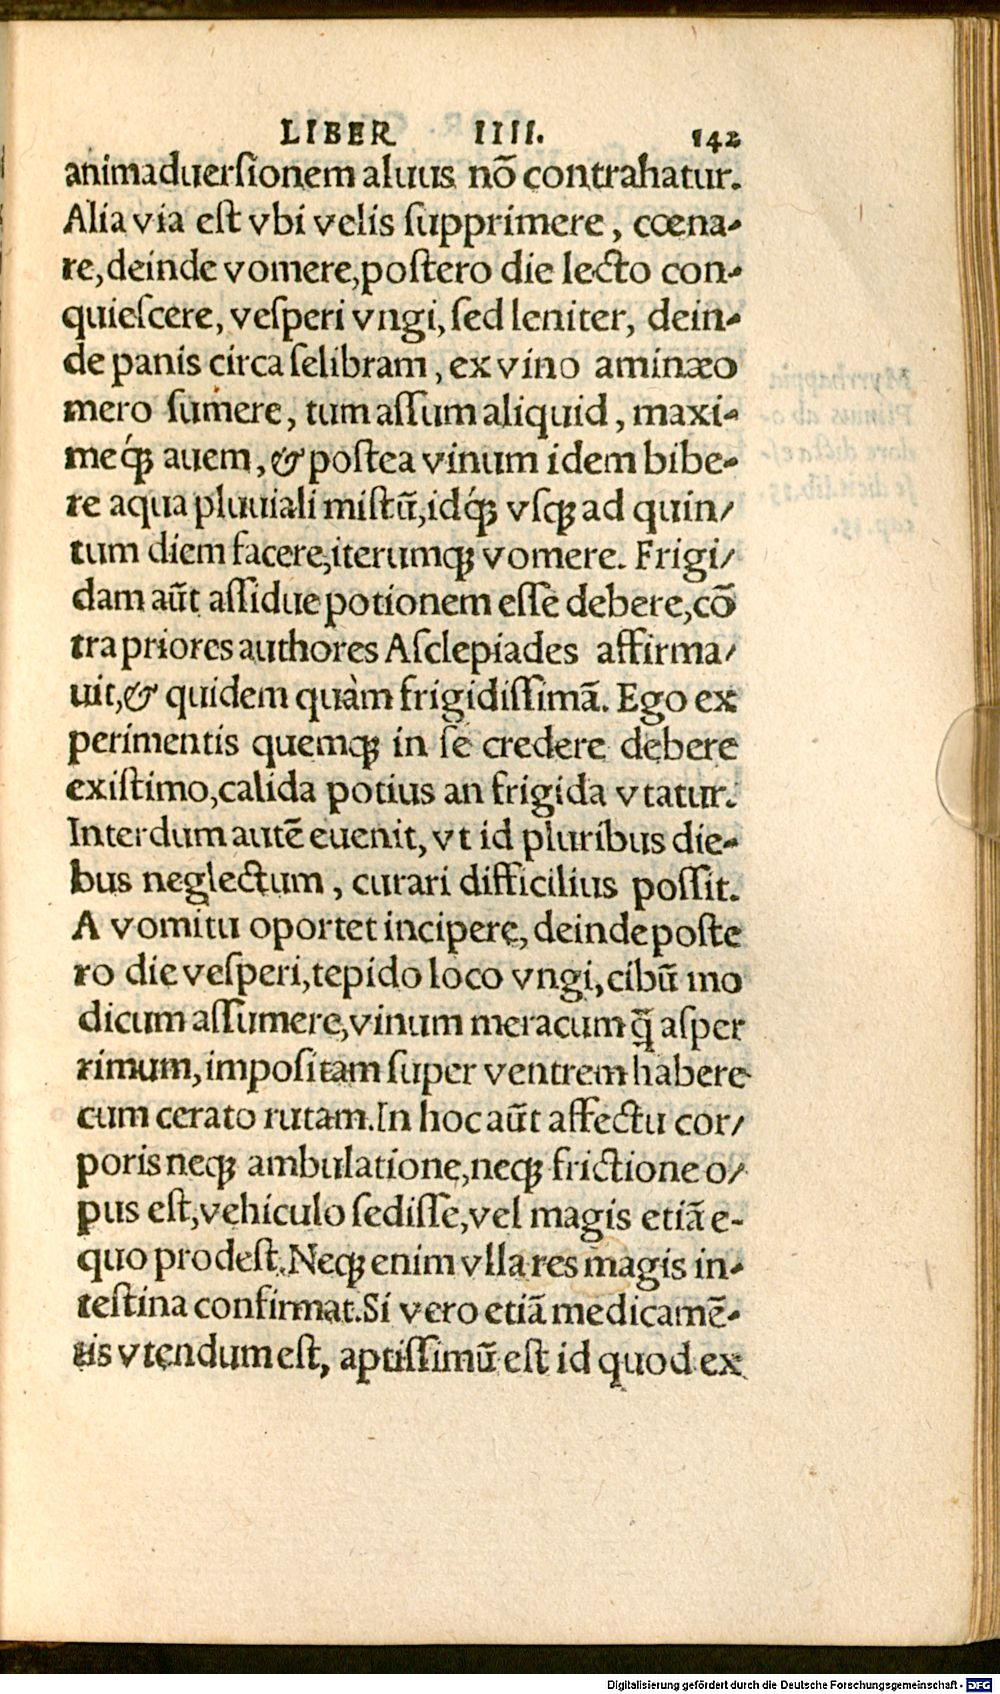 LIBER IIII. 142
animaduerſionem aluus nõ contrahatur.
Alia via eſt vbi velis ſupprimere, cœna-
re, deinde vomere, poſtero die lecto con-
quieſcere, veſperi vngi, ſed leniter, dein-
de panis circa ſelibram, ex vino aminæo
mero ſumere, tum aſſum aliquid, maxi-
meq́ꝫ auem, & poſtea vinum idem bibe-
re aqua pluuiali miſtũ, idq́ꝫ vſqꝫ ad quin/
tum diem facere, iterumqꝫ vomere. Frigi/
dam aũt aſſidue potionem eſſe debere, cõ
tra priores authores Aſclepiades affirma/
uit, & quidem quàm frigidiſſimã. Ego ex
perimentis quemqꝫ in ſe credere debere
exiſtimo, calida potius an frigida vtatur.
Interdum autẽ euenit, vt id pluribus die-
bus neglectum, curari difficilius poſſit.
A vomitu oportet incipere, deinde poſte
ro die veſperi, tepido loco vngi, cibũ mo
dicum aſſumere, vinum meracum q̃ aſper
rimum, impoſitam ſuper ventrem habere
cum cerato rutam. In hoc aũt affectu cor/
poris neqꝫ ambulatione, neqꝫ frictione o/
pus eſt, vehiculo ſediſſe, vel magis etiã e-
quo prodeſt. Neqꝫ enim vlla res magis in-
teſtina confirmat. Si vero etiã medicamẽ-
tis vtendum eſt, aptiſſimũ eſt id quod ex
Digitalisierung gefördert durch die Deutsche Forschungsgemeinschaft - DFG